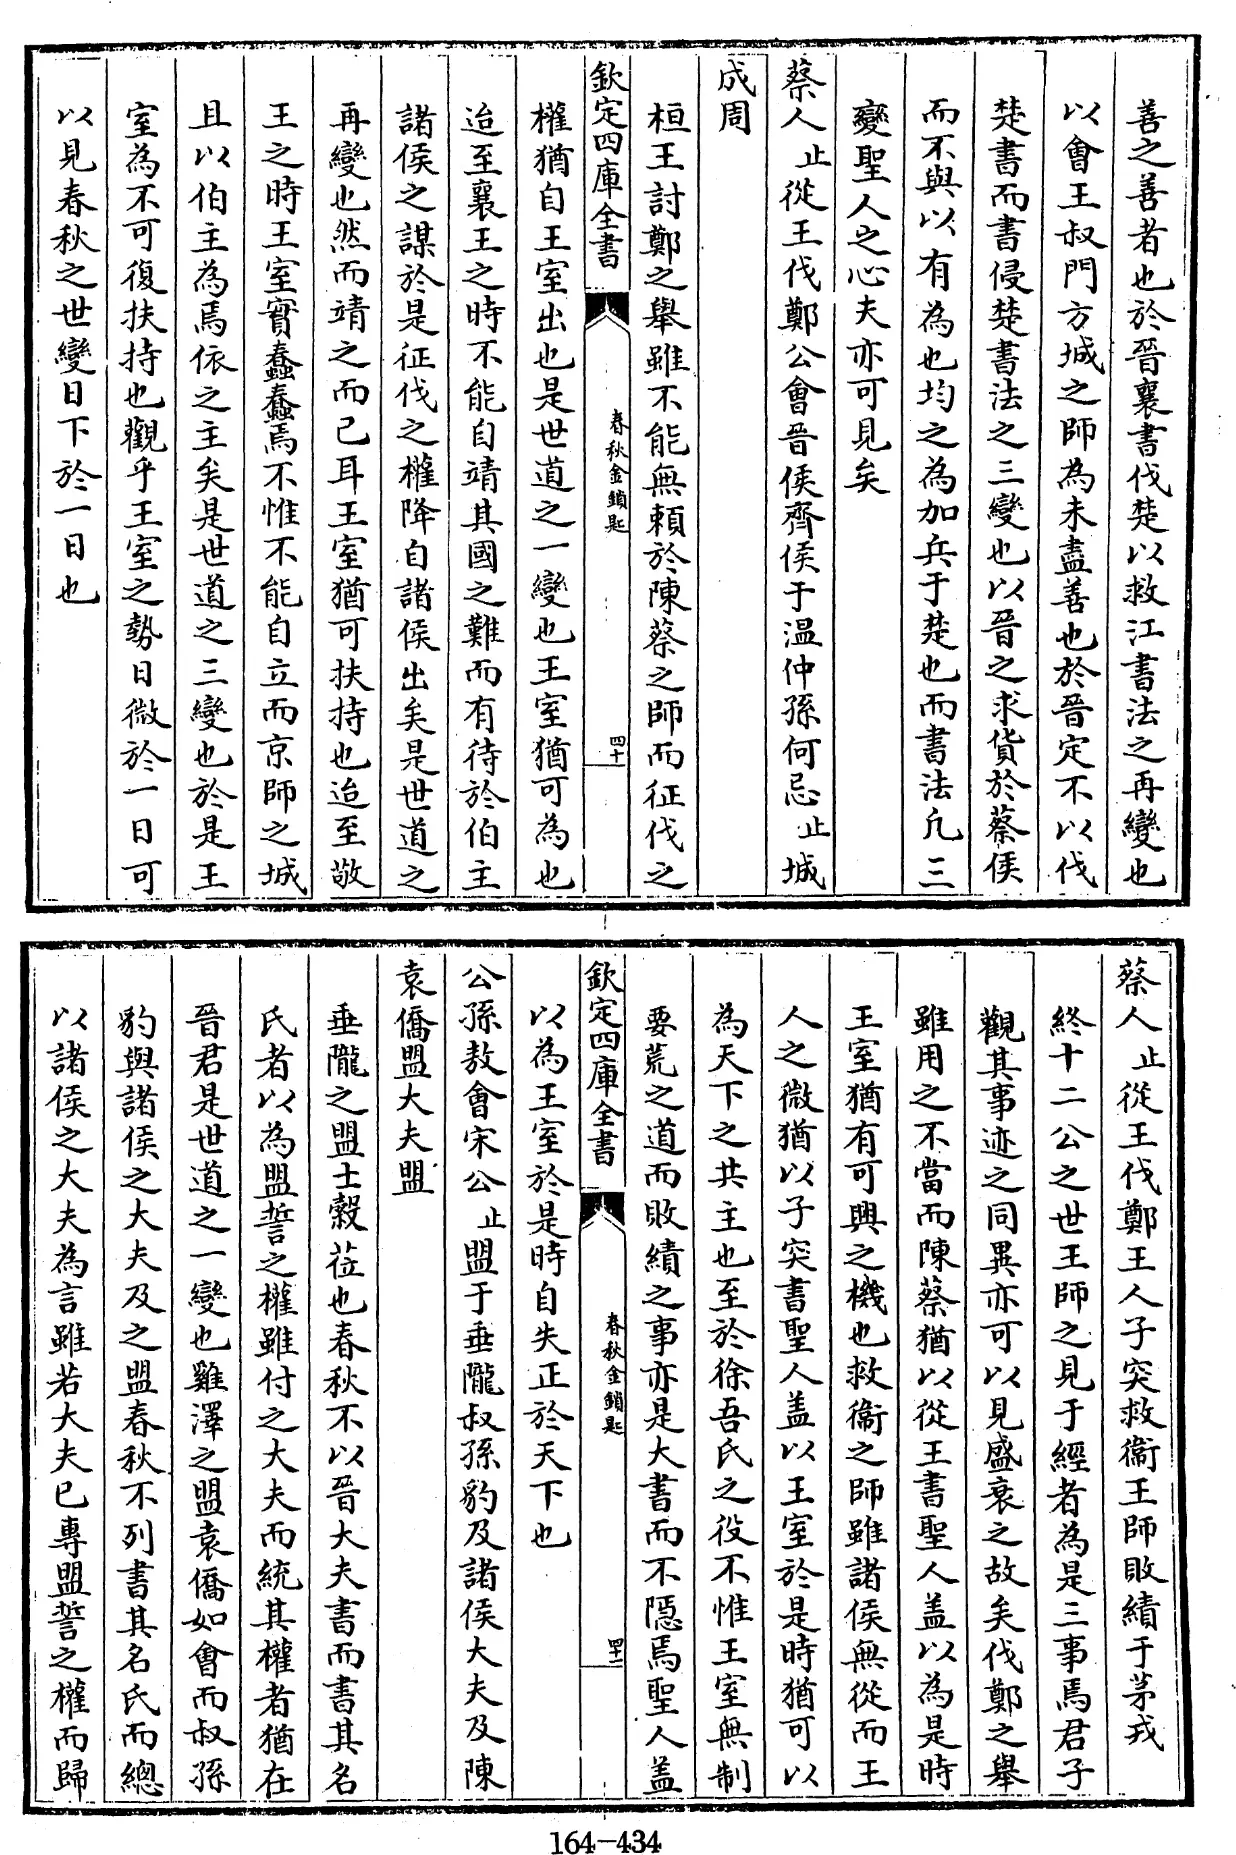 善之善者也於晉襄書伐楚以救江書法之再變也
以會王叔門方城之師為未盡善也於晉定不以伐
楚書而書侵楚書法之三變也以晉之求貨於蔡侯
而不與以有為也均之為加兵于楚也而書法凡三
變聖人之心夫亦可見矣
蔡人止從王伐鄭公會晉侯齊侯于温仲孫何忌止城
成周
桓王討鄭之舉雖不能無頼於陳蔡之師而征伐之
欽定四庫全書
春秋金鎖匙
四十
權猶自王室出也是世道之一變也王室猶可為也
迨至襄王之時不能自靖其國之難而有待於伯主
諸侯之謀於是征伐之權降自諸侯出矣是世道之
再變也然而靖之而已耳王室猶可扶持也迨至敬
王之時王室實蠢蠢焉不惟不能自立而京師之城
且以伯主為焉依之主矣是世道之三變也於是王
室為不可復扶持也觀乎王室之勢日微於一日可
以見春秋之世變日下於一日也
蔡人止從王伐鄭王人子突救衞王師敗績于茅戎
終十二公之世王師之見于經者為是三事焉君子
觀其事迹之同異亦可以見盛衰之故矣伐鄭之舉
雖用之不當而陳蔡猶以從王書聖人盖以為是時
王室猶有可興之機也救衞之師雖諸侯無從而王
人之微猶以子突書聖人盖以王室於是時猶可以
為天下之共主也至於徐吾氏之役不惟王室無制
要荒之道而敗績之事亦是大書而不隱焉聖人盖
欽定四庫全書
春秋金鎖匙
四十一
以為王室於是時自失正於天下也
公孫敖會宋公止盟于垂隴叔孫豹及諸侯大夫及陳
袁僑盟大夫盟
垂隴之盟士縠莅也春秋不以晉大夫書而書其名
氏者以為盟誓之權雖付之大夫而統其權者猶在
晉君是世道之一變也雞澤之盟袁僑如會而叔孫
豹與諸侯之大夫及之盟春秋不列書其名氏而總
以諸侯之大夫為言雖若大夫已專盟誓之權而歸
164-434